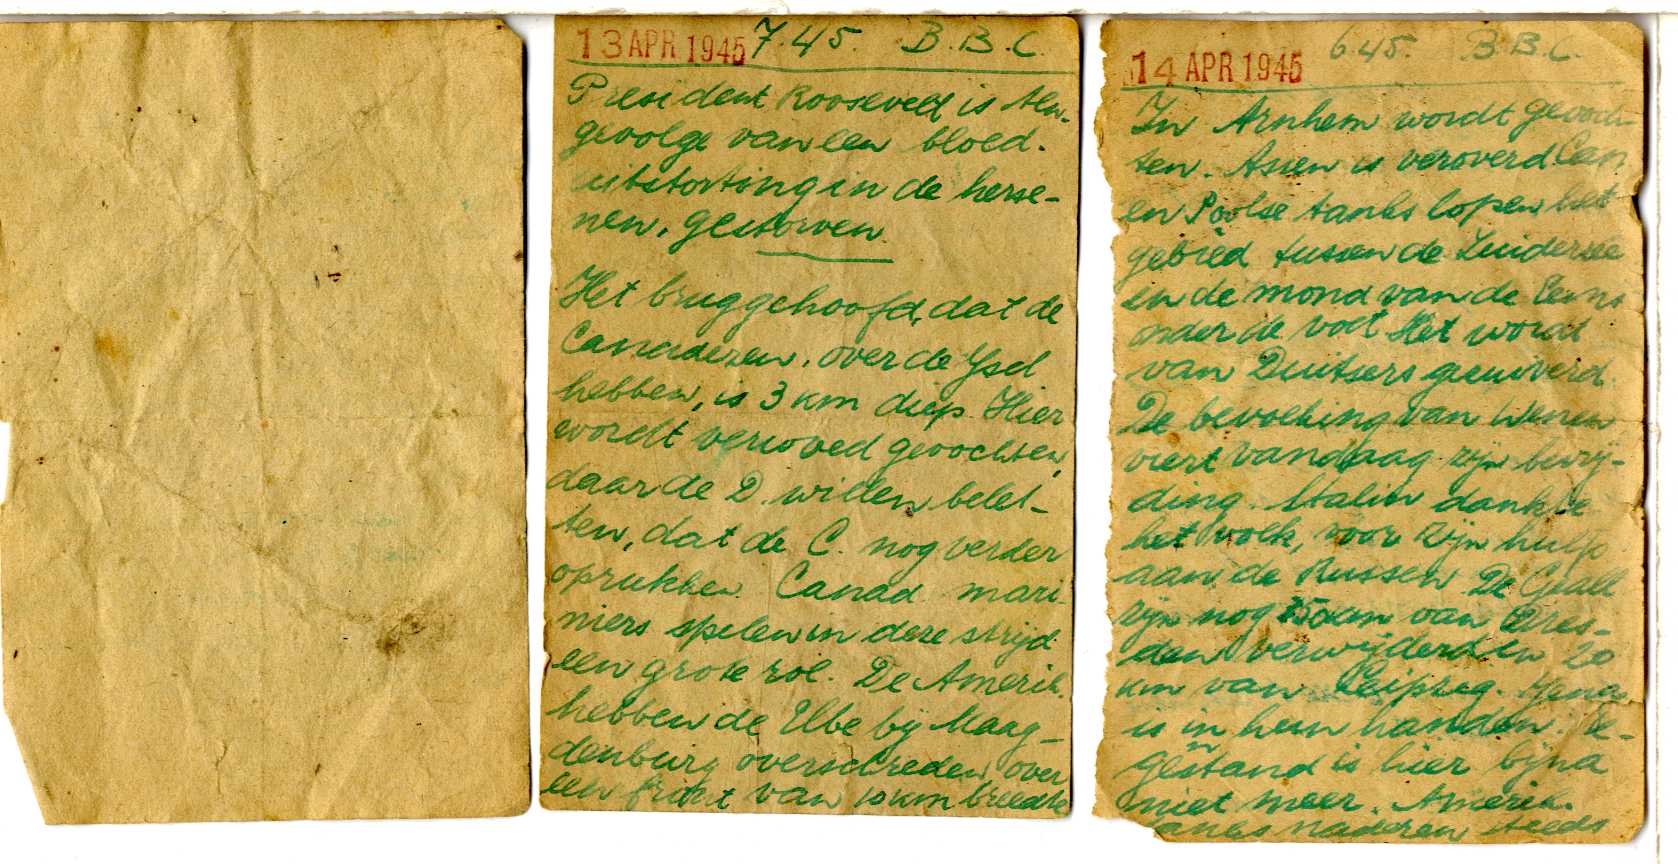 13 APR 1945 7.45. B.B.C.
President Roosevelt is ten-
gevolge van een bloed-
uitstorting in de herse-
nen, gestorven.
Het bruggehoofd, dat de
Canadezen, over de Ysel
hebben, is 3 km diep. Hier
wordt verwoed gevochten,
daar de D. willen belet-
ten, dat de C. nog verder
oprukken. Canad. mari-
niers spelen in deze strijd
een grote rol. De Amerik.
hebben de Elbe bij Maag-
denburg overschreden, over
een front van 10 km breedte
14 APR 1945 6.45. B.B.C.
In Arnhem wordt gevoch-
ten. Assen is veroverd Can
en Poolse tanks lopen het
gebied tussen de Zuidersee
en de mond van de Eems
onder de voet Het wordt
van Duitsers gezuiverd.
De bevolking van Wenen
viert vandaag zijn bevrij-
ding. Stalin dankte
het volk, voor zijn hulp
aan de Russen De Geall
zijn nog 75 km van Dres-
den verwijderd en 20
km van Leipzig. Jena
is in hun handen. Te-
genstand is hier bijna
niet meer. Amerik.
tanks naderen steeds